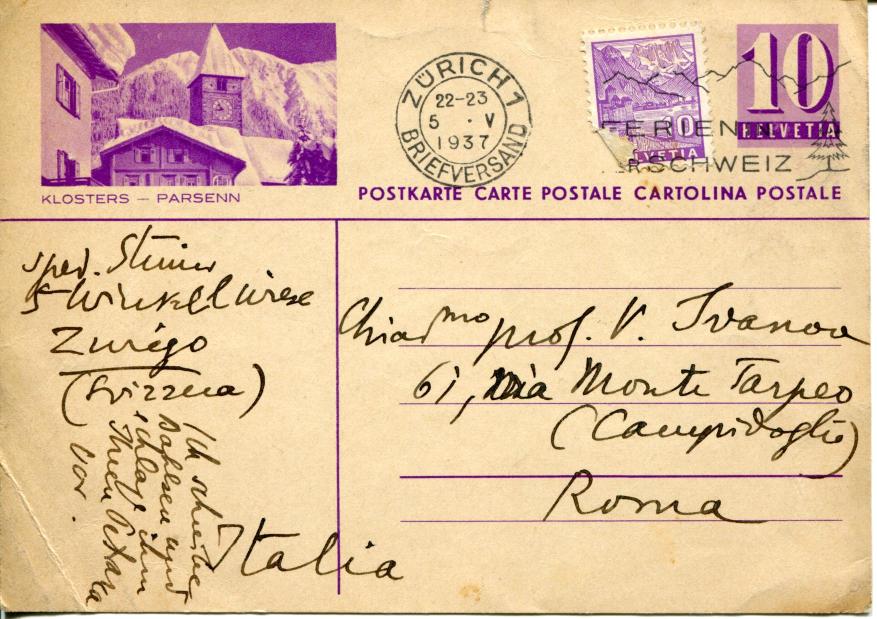 KLOSTERS – PARSENN
ZÜRICH 1
22-23
5 · V
1937
BRIEFVERSAND
10
HELVETIA
10
HELVETIA
FERIEN IN
DER SCHWEIZ
POSTKARTE CARTE POSTALE CARTOLINA POSTALE
sped. Steiner
5 Winkelwiese
Zurigo
(Svizzera)
Ich schreibe
und
schlage ihm
Ihnen
vor.
Chiar mo prof. V. Ivanov
61, via Monte Tarpeo
(Campidoglio)
Roma
Italia